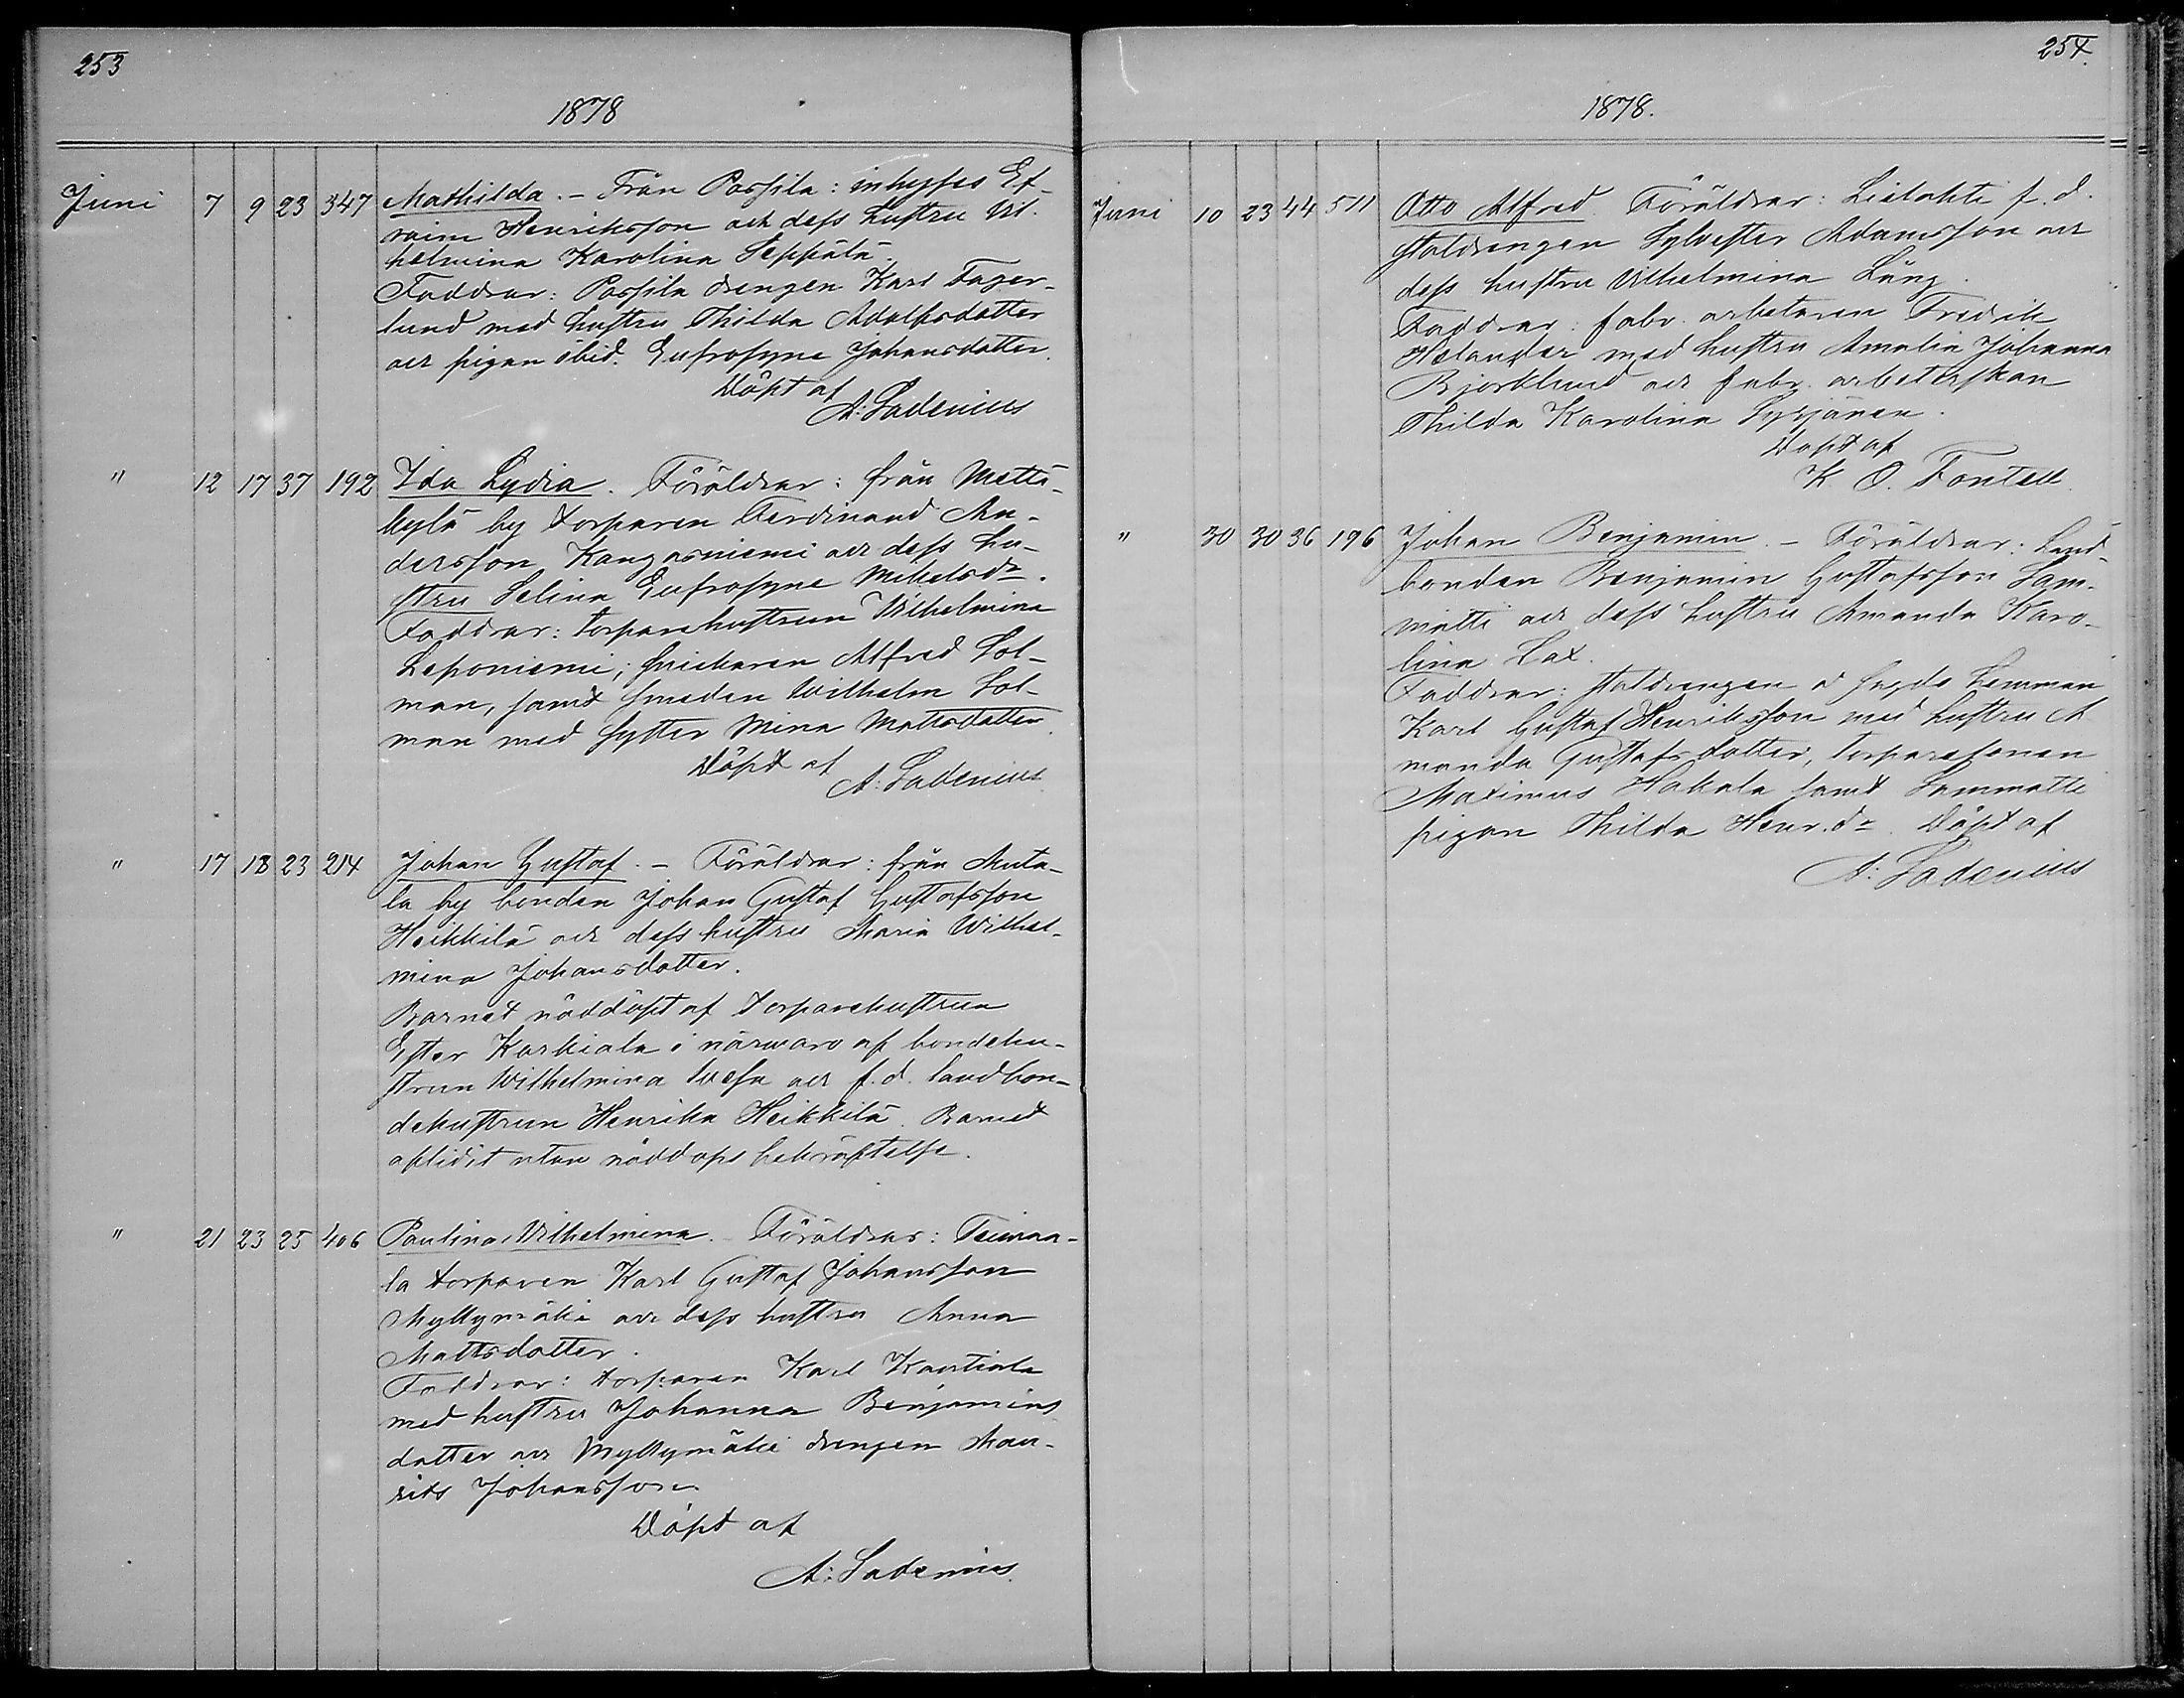 253
1878
Juni 7 9 23 347 Mathilda. - Från Passila: inhyses Ef-
raim Henriksson och dess hustru Vil-
helmina Karolina Seppälä.
Faddrar: Passila drengen Karl Fager-
lund med hustru Thilda Adolfsdotter
och pigan ibid. Eufrosyne Johansdotter.
Döpt af
A: Ladenius
" 12 17 37 192 Ida Lydia. Föräldrar: från Metti-
kylä by torparen Ferdinand An-
dersson Kangasniemi och dess hu-
stru Selina Eufrosyne Mikelsdr.
Faddrar: torparehustrun Vilhelmina
Leponiemi; snickaren Alfred Sol-
man, samt smeden Wilhelm Sol-
man med syster Mina Mattsdotter.
Döpt af
A: Ladenius
" 17 18 23 214 Johan Gustaf. - Föräldrar: från Muta-
la by bonden Johan Gustaf Gustafsson
Heikkilä och dess hustru Maria Wilhel-
mina Johansdotter.
Barnet nöddöpt af torparehustrun
Ester Karkiala i närvaro af bondehu-
strun Wilhelmina och f.d. landbon-
dehustrun Henrika Heikkilä. Barnet
aflidit utan nöddops bekräftelse.
" 21 23 25 406 Paulina Wilhelmina. Föräldrar: Teimaa-
la torparen Karl Gustaf Johansson
Myllymäki och dess hustru Anna
Mattsdotter.
Faddrar: torparen Karl
med hustru Johanna Benjamins
dotter och Myllymäki drengen Mau-
rits Johansson
Döpt af
A: Ladenius.
254.
1878.
Juni 10 23 44 511 Otto Alfred. Föräldrar: Lielahti f.d.
staldrengen Sylvester Adamsson och
dess hustru Vilhelmina Lång.
Faddrar: fabr. arbetaren Fredrik
Helander med hustru Amalia Johanna
Bjorklund och fabr. arbeterskan
Thilda Karolina Syrjänen.
Döpt af
K. O. Fontell.
" 30 30 36 196 Johan Benjamin. - Föräldrar: Land-
bonden Benjamin Gustafsson Lam-
matti och dess hustru Amanda Karo-
lina Lax.
Faddrar: staldrengen
Karl Gustaf Henriksson med hustru A
manda Gustafsdotter, torparesonen
Maximus Hakala samt Lammatti
pigan Thilda Henr.dr. Döpt af
A: Ladenius